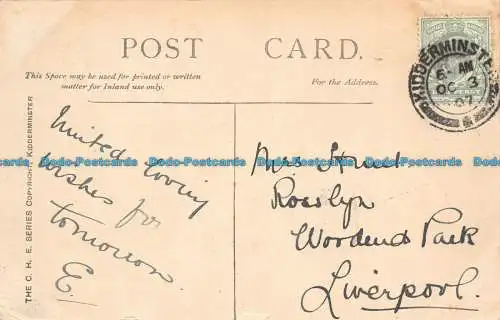 POST CARD.
This Space may be used for printed or written
matter for Inland use only.
For the Address.
KIDDERMINSTER
6- AM
OC 3
07
THE C. H. E. SERIES COPYRIGHT, KIDDERMINSTER
United loving
wishes for
tomorrow
E.
Mrs Street
Rosslyn
Woodend Park
Liverpool.
Dodo-Postcards Dodo-Postcards Dodo-Postcards Dodo-Postcards Dodo-Postcards